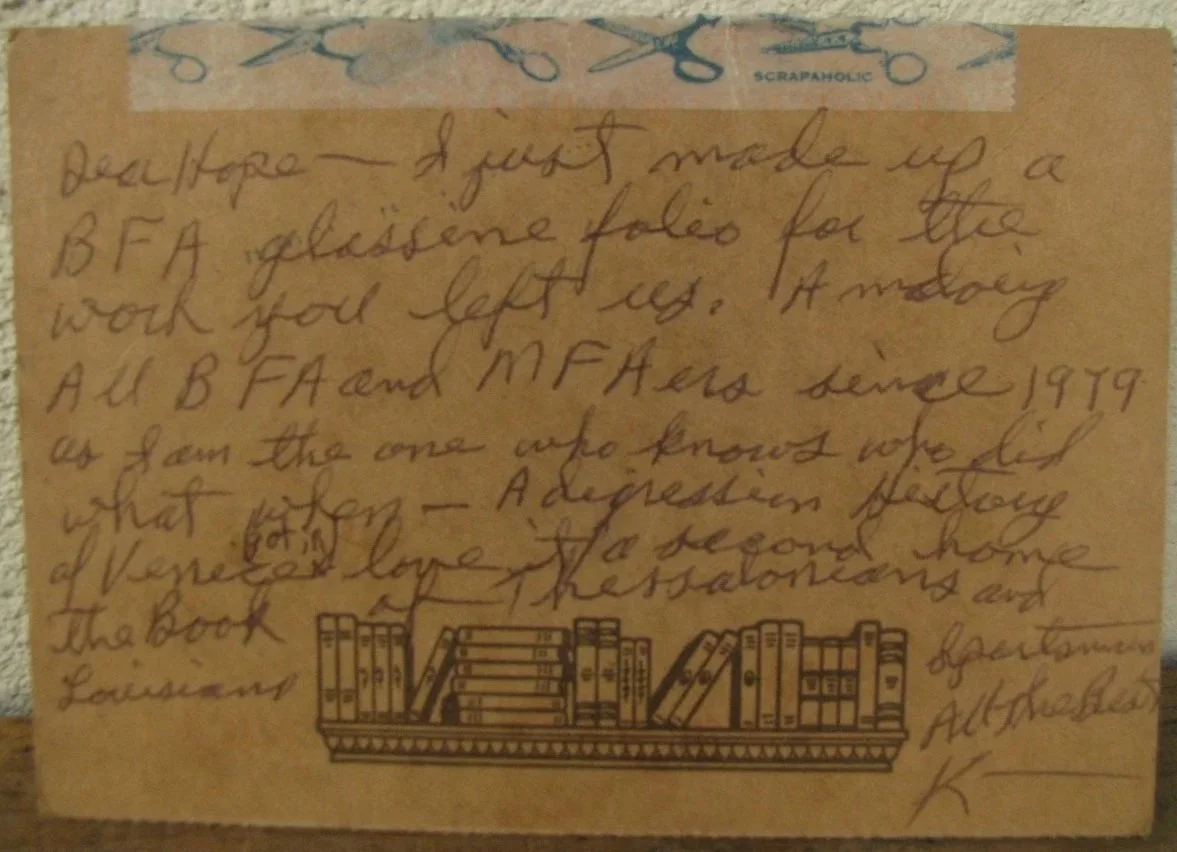 SCRAPAHOLIC
Dear Hope — I just made up a
BFA glassine folio for the
work you left us. Am doing
All BFA and MFAers since 1979
as I am the one who knows who did
what when — A digression History
of Venice got in love it a second home
the Book of Thessalonians and
Louisiana
All the Best
K —